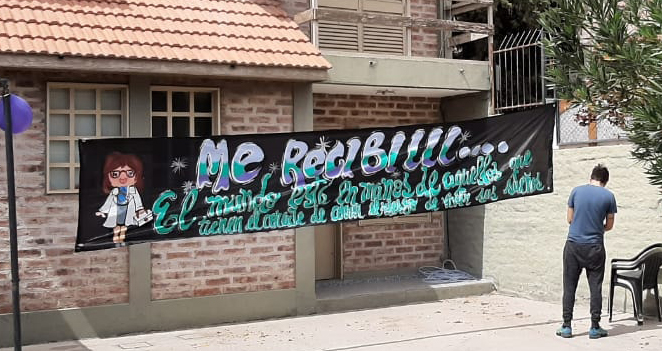 Me Recibiiii....
El mundo está en manos de aquellos que
tienen el coraje de correr el riesgo de vivir sus sueños